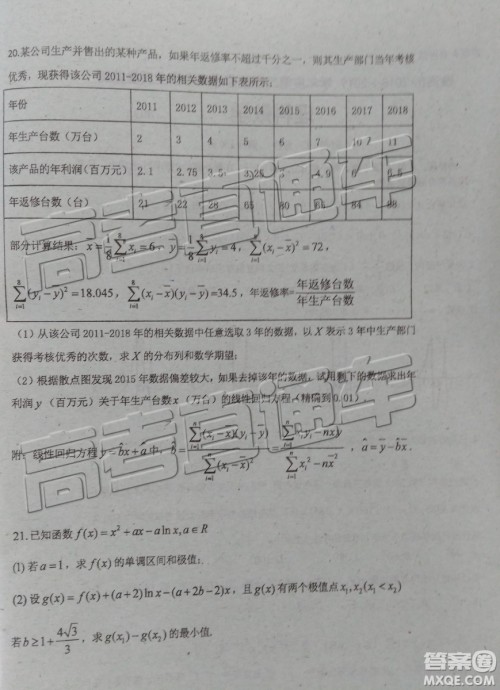 20.某公司生产并售出的某种产品，如果年返修率不超过千分之一，则其生产部门当年考核
优秀，现获得该公司 2011-2018 年的相关数据如下表所示：
年份 2011 2012 2013 2014 2015 2016 2017 2018
年生产台数（万台） 2 3 4 5 6 7 10 11
该产品的年利润（百万元） 2.1 2.75 3.5 3.25 4.9 6 6.5
年返修台数（台） 21 22 28 65 80 84 88
部分计算结果：x̄=1/8∑xᵢ=6，ȳ=1/8∑yᵢ=4，∑(xᵢ-x̄)²=72，
∑(yᵢ-ȳ)²=18.045，∑(xᵢ-x̄)(yᵢ-ȳ)=34.5，年返修率=年返修台数/年生产台数
（1）从该公司 2011-2018 年的相关数据中任意选取 3 年的数据，以 X 表示 3 年中生产部门
获得考核优秀的次数，求 X 的分布列和数学期望；
（2）根据散点图发现 2015 年数据偏差较大，如果去掉该年的数据，试用剩下的数据求出年
利润 y（百万元）关于年生产台数 x（万台）的线性回归方程（精确到 0.01）.
附：线性回归方程 ŷ=b̂x+â 中，b̂=∑(xᵢ-x̄)(yᵢ-ȳ)/∑(xᵢ-x̄)²=∑xᵢyᵢ-nx̄ȳ/∑xᵢ²-nx̄²，â=ȳ-b̂x̄.
21.已知函数 f(x)=x²+ax-a ln x,a∈R
(1) 若 a=1，求 f(x) 的单调区间和极值；
(2) 设 g(x)=f(x)+(a+2)ln x-(a+2b-2)x，且 g(x) 有两个极值点 x₁,x₂(x₁<x₂)
若 b≥1+4√3/3，求 g(x₁)-g(x₂) 的最小值.
高考直通车
答案圈
MXQE.COM